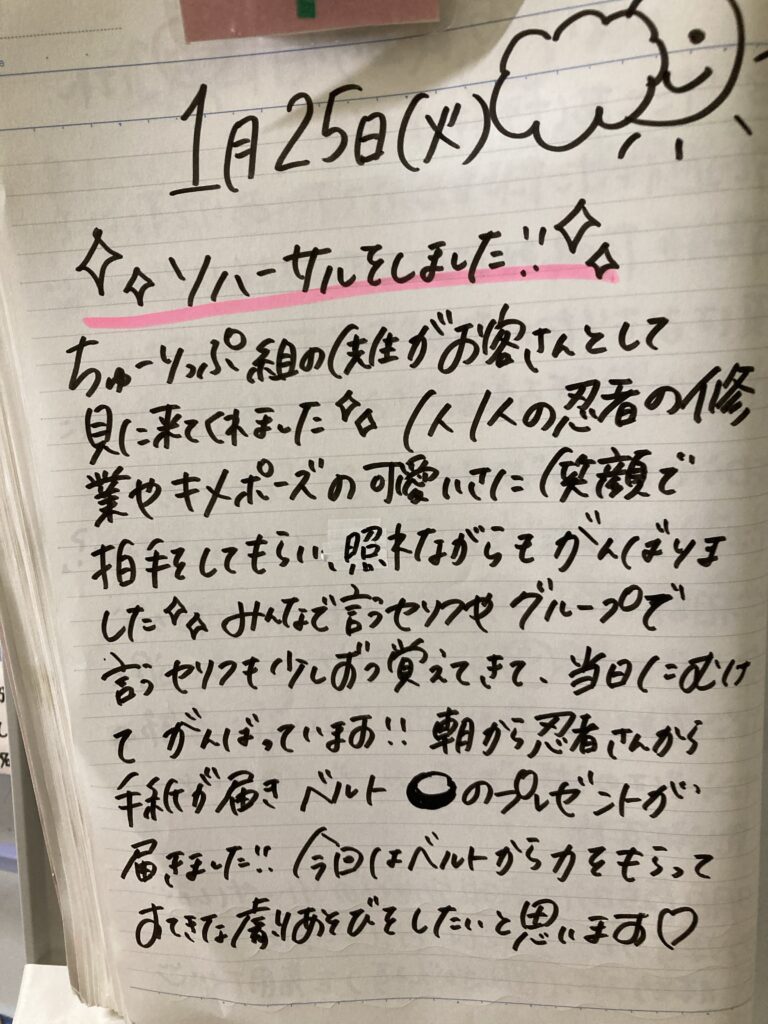 1月25日(火)
リハーサルをしました!!
ちゅーりっぷ組の先生がお客さんとして
見に来てくれました 1人1人の忍者の修
業やキメポーズの可愛いさに笑顔で
拍手をしてもらい、照れながらもがんばりま
した みんなで言うセリフやグループで
言うセリフも少しずつ覚えてきて、当日にむけ
てがんばっています!! 朝から忍者さんから
手紙が届き ベルト のプレゼントが
届きました!! 今回はベルトから力をもらって
すてきな劇あそびをしたいと思います♡